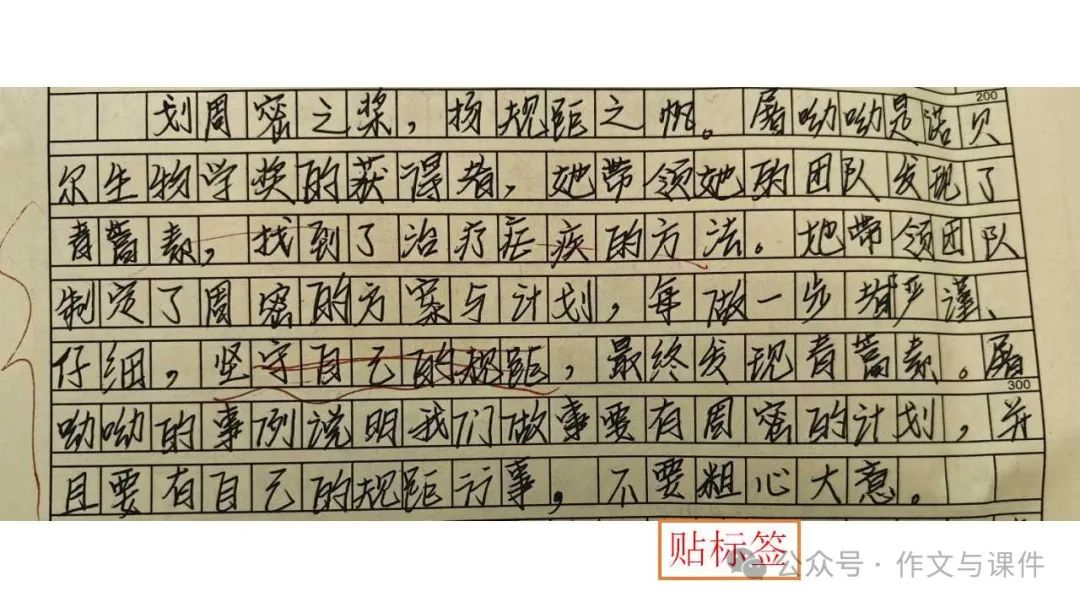 200
划周密之桨，扬规距之帆。屠呦呦是诺贝
尔生物学奖的获得者，她带领她的团队发现了
青蒿素，找到了治疗疟疾的方法。她带领团队
制定了周密的方案与计划，每做一步都严谨、
仔细，坚守自己的规距，最终发现青蒿素。屠
300
呦呦的事例说明我们做事要有周密的计划，并
且要有自己的规距行事，不要粗心大意。
贴标签
公众号·作文与课件